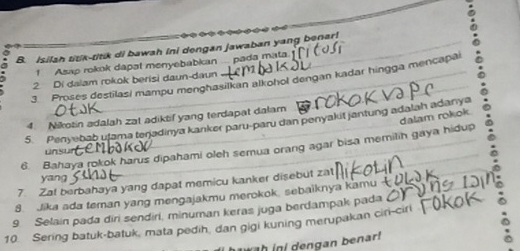 B. Isilah titik-titik di bawah ini dengan jawaban yang benar!
1 Asap rokok dapat menyebabkan pada mata iritasi
2. Di dalam rokok berisi daun-daun tembakau
3. Proses destilasi mampu menghasilkan alkohol dengan kadar hingga mencapai
otak
4. Nikotin adalah zat adiktif yang terdapat dalam rokok vape
5. Penyebab utama terjadinya kanker paru-paru dan penyakit jantung adalah adanya
unsur tembakau dalam rokok.
6. Bahaya rokok harus dipahami oleh semua orang agar bisa memilih gaya hidup
yang sehat
7. Zat berbahaya yang dapat memicu kanker disebut zat nikotin
8. Jika ada teman yang mengajakmu merokok, sebaiknya kamu tolak
9. Selain pada diri sendiri, minuman keras juga berdampak pada orang lain
10. Sering batuk-batuk, mata pedih, dan gigi kuning merupakan ciri-ciri rokok
di bawah ini dengan benar!